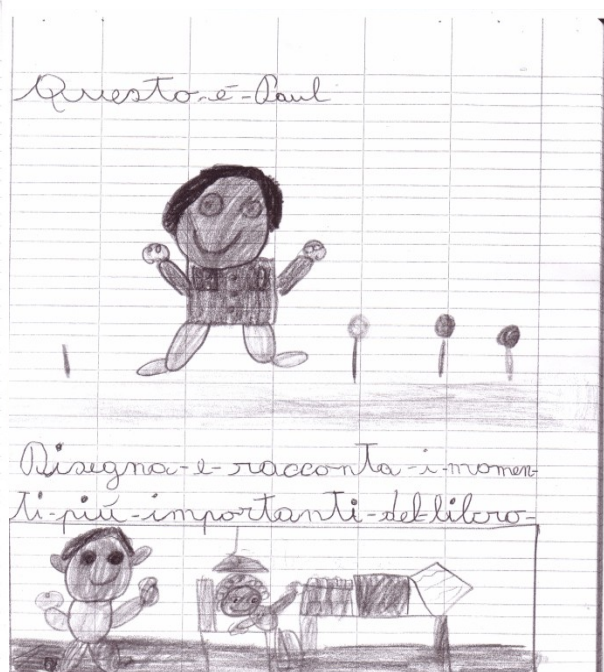 Questo-è-Paul
Disegna-e-racconta-i-momen-
ti-più-importanti-del-libro-